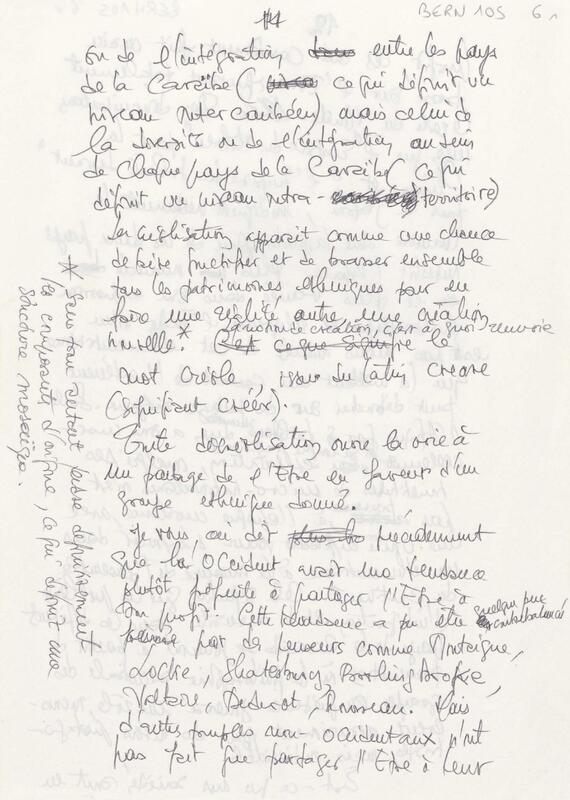 BERN 105 6
14
ou de l'intégration entre les pays
de la Caraïbe (ce qui définit un
niveau intercaribéen) mais celui de
la diversité ou de l'intégration au sein
de chaque pays de la Caraïbe (ce qui
définit un niveau intra-territoire)
la créolisation apparaît comme une chance
de faire fructifier et de brasser ensemble
tous les patrimoines ethniques pour en
faire une réalité autre, une création
nouvelle.* la notion de création, c'est à quoi renvoie
le
mot créole issu du latin, creare
(signifiant créer).
Toute décréolisation ouvre la voie à
un partage de l'Etre en faveur d'un
groupe ethnique donné.
Je vous ai dit précédemment
que l'Occident avait une tendance
plutôt à partager l'Etre à
son profit. Cette tendance a pu être quelque peu
contrebalancée
par des penseurs comme Montaigne,
Locke, Shaftesbury, Bolingbroke,
Voltaire, Diderot, Rousseau. Mais
d'autres peuples non-occidentaux n'ont
pas fait que partager l'Etre à leur
* sans pour autant perdre définitivement
les composants d'origine, ce qui définit une
structure mosaïque.